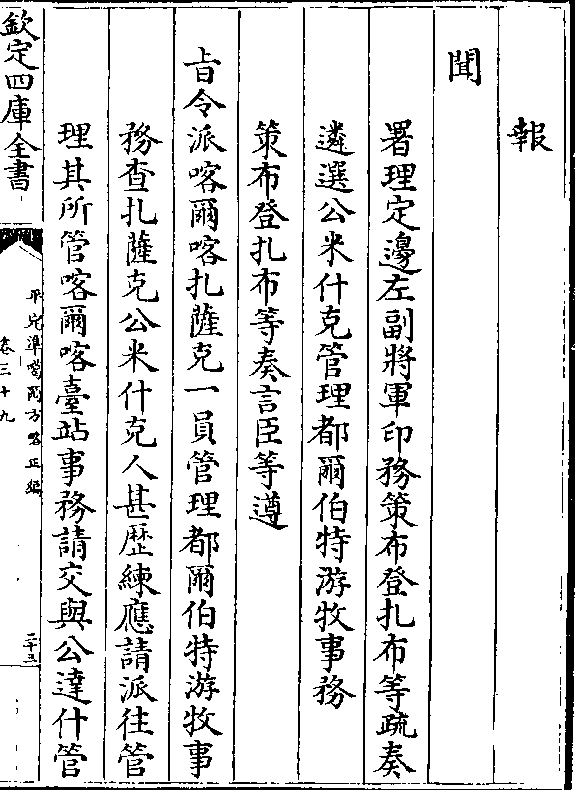 報
聞
署理定邊左副將軍印務策布登扎布等疏奏
遴選公米什克管理都爾伯特游牧事務
策布登扎布等奏言臣等遵
旨令派喀爾喀扎薩克一員管理都爾伯特游牧事
務查扎薩克公米什克人甚歷練應請派往管
理其所管喀爾喀臺站事務請交與公達什管
欽定四庫全書
平定準噶爾方略正編
卷三十九
二十五